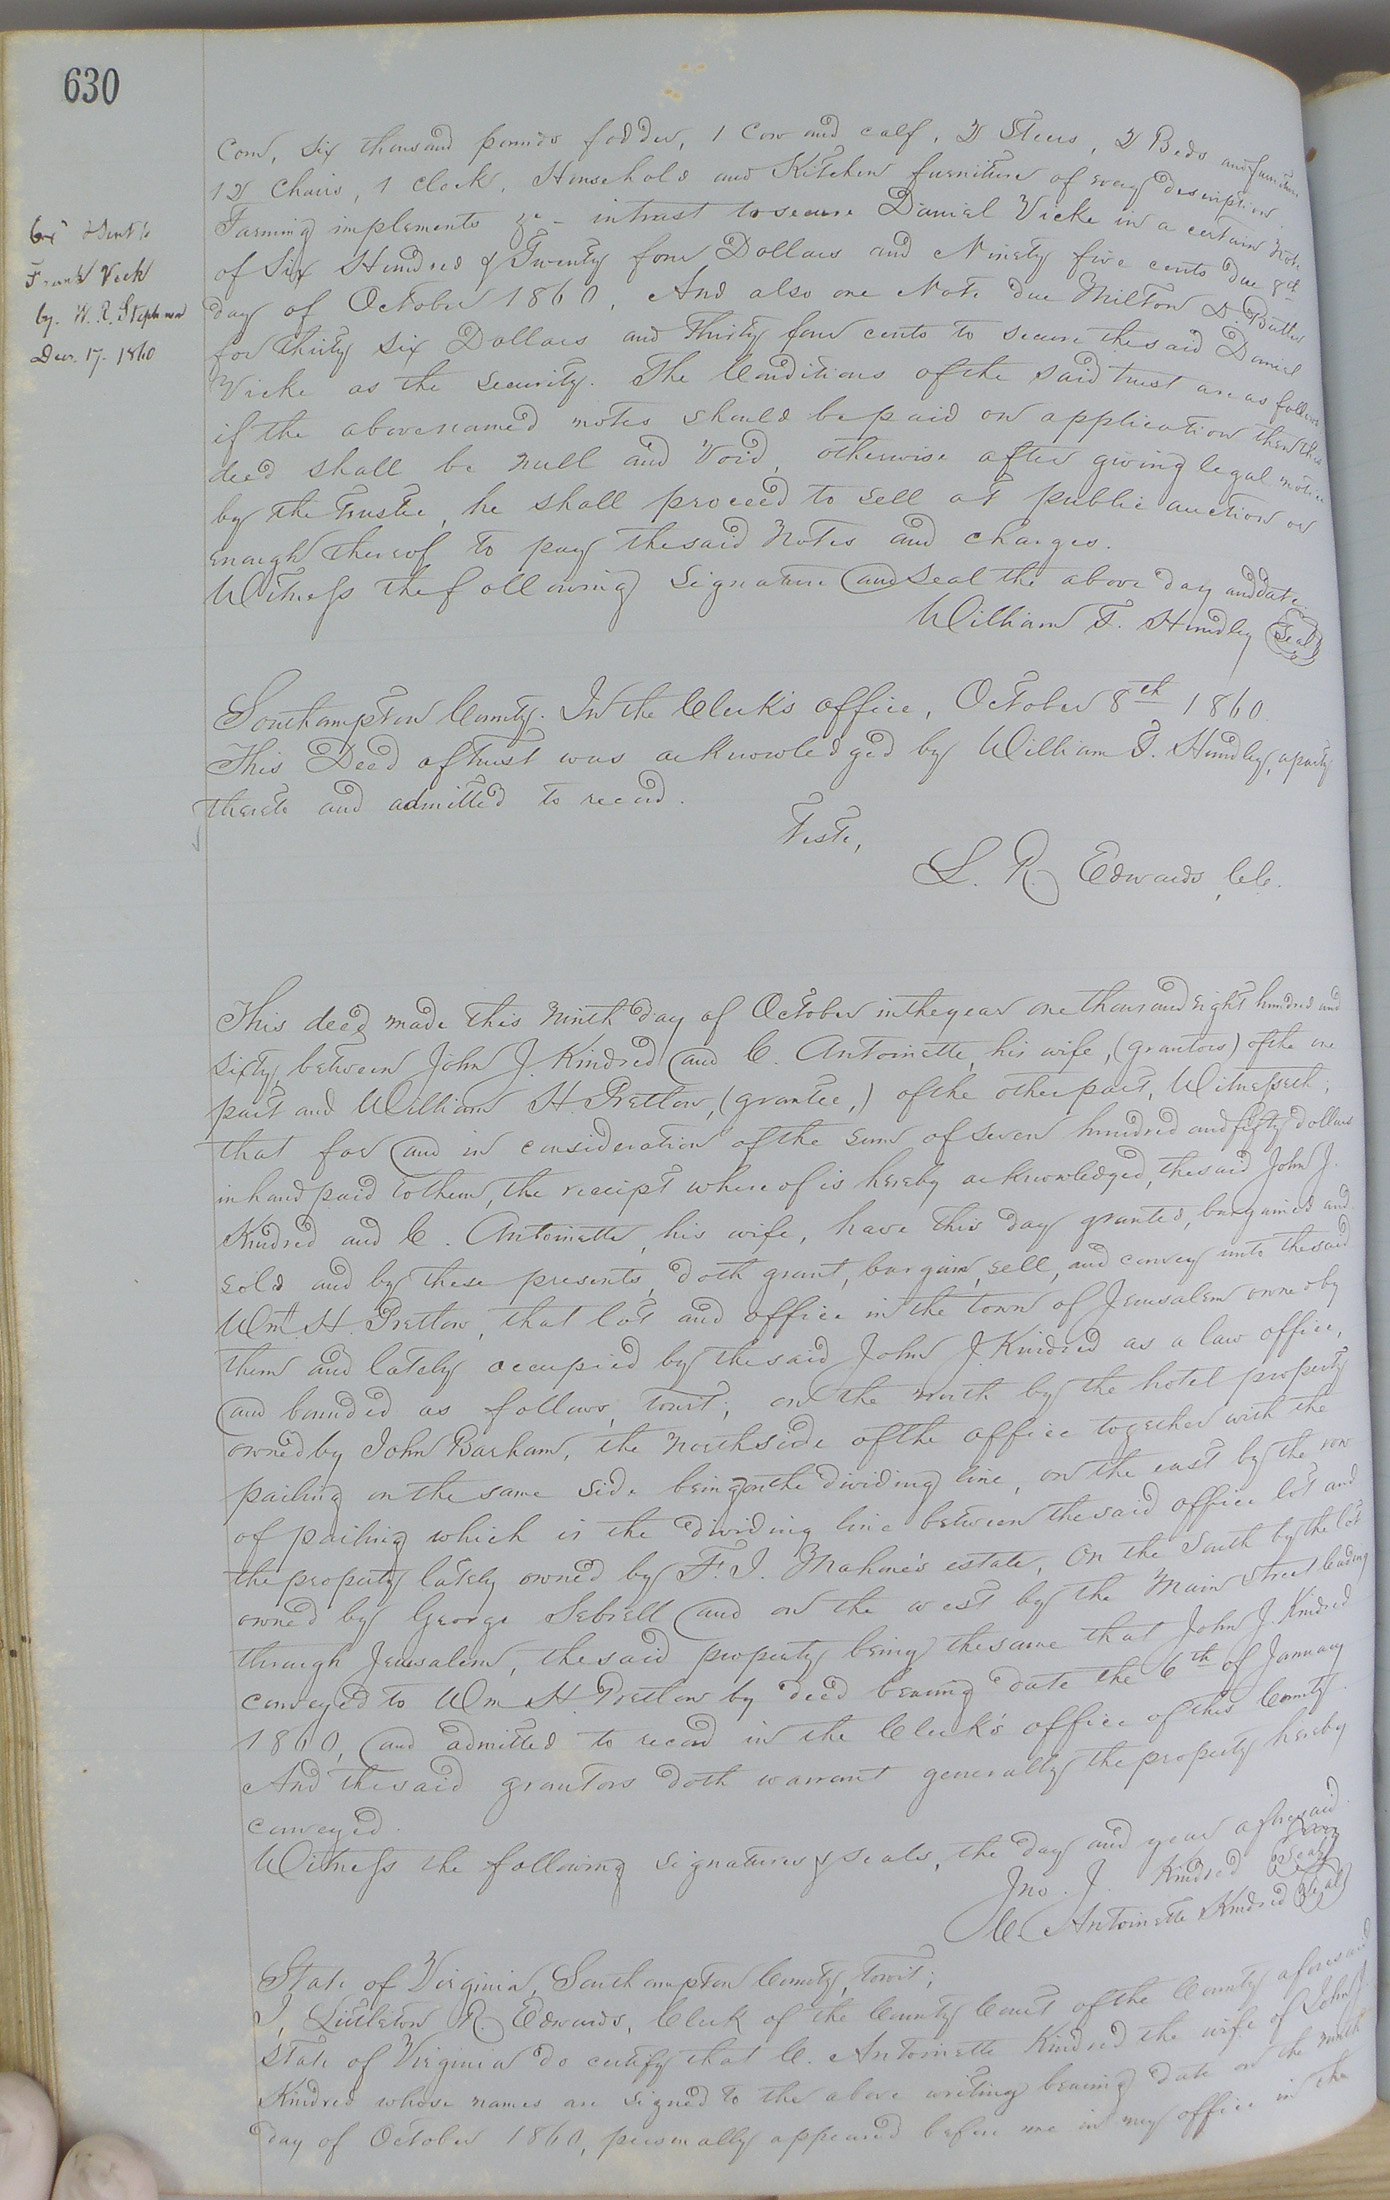 630
Corn, Six thousand pounds fodder, 1 Cow and calf, 2 Steers, 2 Beds and furniture
12 Chairs, 1 clock, Household and Kitchen furniture of every description,
Farming implements &c - intrust to secure Daniel Vicke in a certain Note
of Six Hundred & Twenty four Dollars and Ninety five cents due 8th
day of October 1860, And also one Note due Milton D Butler
for thirty Six Dollars and Thirty four cents to secure the said Daniel
Vicke as the Security. The Conditions of the said trust are as follows
if the above named notes should be paid on application then this
deed shall be null and Void, otherwise after giving legal notice
by the Trustee, he shall proceed to sell at public auction or
enough thereof to pay the said Notes and charges.
Witness the following Signature and Seal the above day and date.
William T. Hundley Seal
Exd & Sent to
Frank Vick
by. W. R. Stephenson
Decr. 17. 1860
Southampton County. In the Clerk's office, October 8th 1860.
This Deed of trust was acknowledged by William T. Hundley, a party
thereto and admitted to record.
Teste,
L. R. Edwards, Clk.
This deed made this Ninth day of October in the year one thousand eight hundred and
sixty, between John J. Kindred and C. Antoinette, his wife, (grantors) of the one
part and William H. Pretlow, (grantee,) of the other part, Witnesseth;
that for and in consideration of the sum of Seven hundred and fifty dollars
in hand paid to them, the receipt whereof is hereby acknowledged, the said John J.
Kindred and C. Antoinette, his wife, have this day granted, bargained and
sold and by these presents, doth grant, bargain, sell, and convey unto the said
Wm. H. Pretlow, that lot and office in the town of Jerusalem owned by
them and lately occupied by the said John J. Kindred as a law office,
and bounded as follows, towit; on the north by the hotel property
owned by John Barham, the North side of the office together with the
pailing on the same side being on the dividing line, on the east by the row
of pailing which is the dividing line between the said office lot and
the property lately owned by F. J. Mahone's estate, On the South by the lot
owned by George Sebrell and on the west by the Main Street leading
through Jerusalem, the said property being the same that John J. Kindred
conveyed to Wm H. Pretlow by deed bearing date the 6th of January
1860, and admitted to record in the Clerk's office of this County.
And the said grantors doth warrant generally the property hereby
conveyed.
Witness the following signatures & seals, the day and year aforesaid.
Jno. J. Kindred Seal
C. Antoinette Kindred Seal
State of Virginia, Southampton County, towit;
I, Littleton R. Edwards, Clerk of the County Court of the County aforesaid
State of Virginia do certify that C. Antoinette Kindred the wife of John J
Kindred whose names are signed to the above writing bearing date on the ninth
day of October 1860, personally appeared before me in my office in the